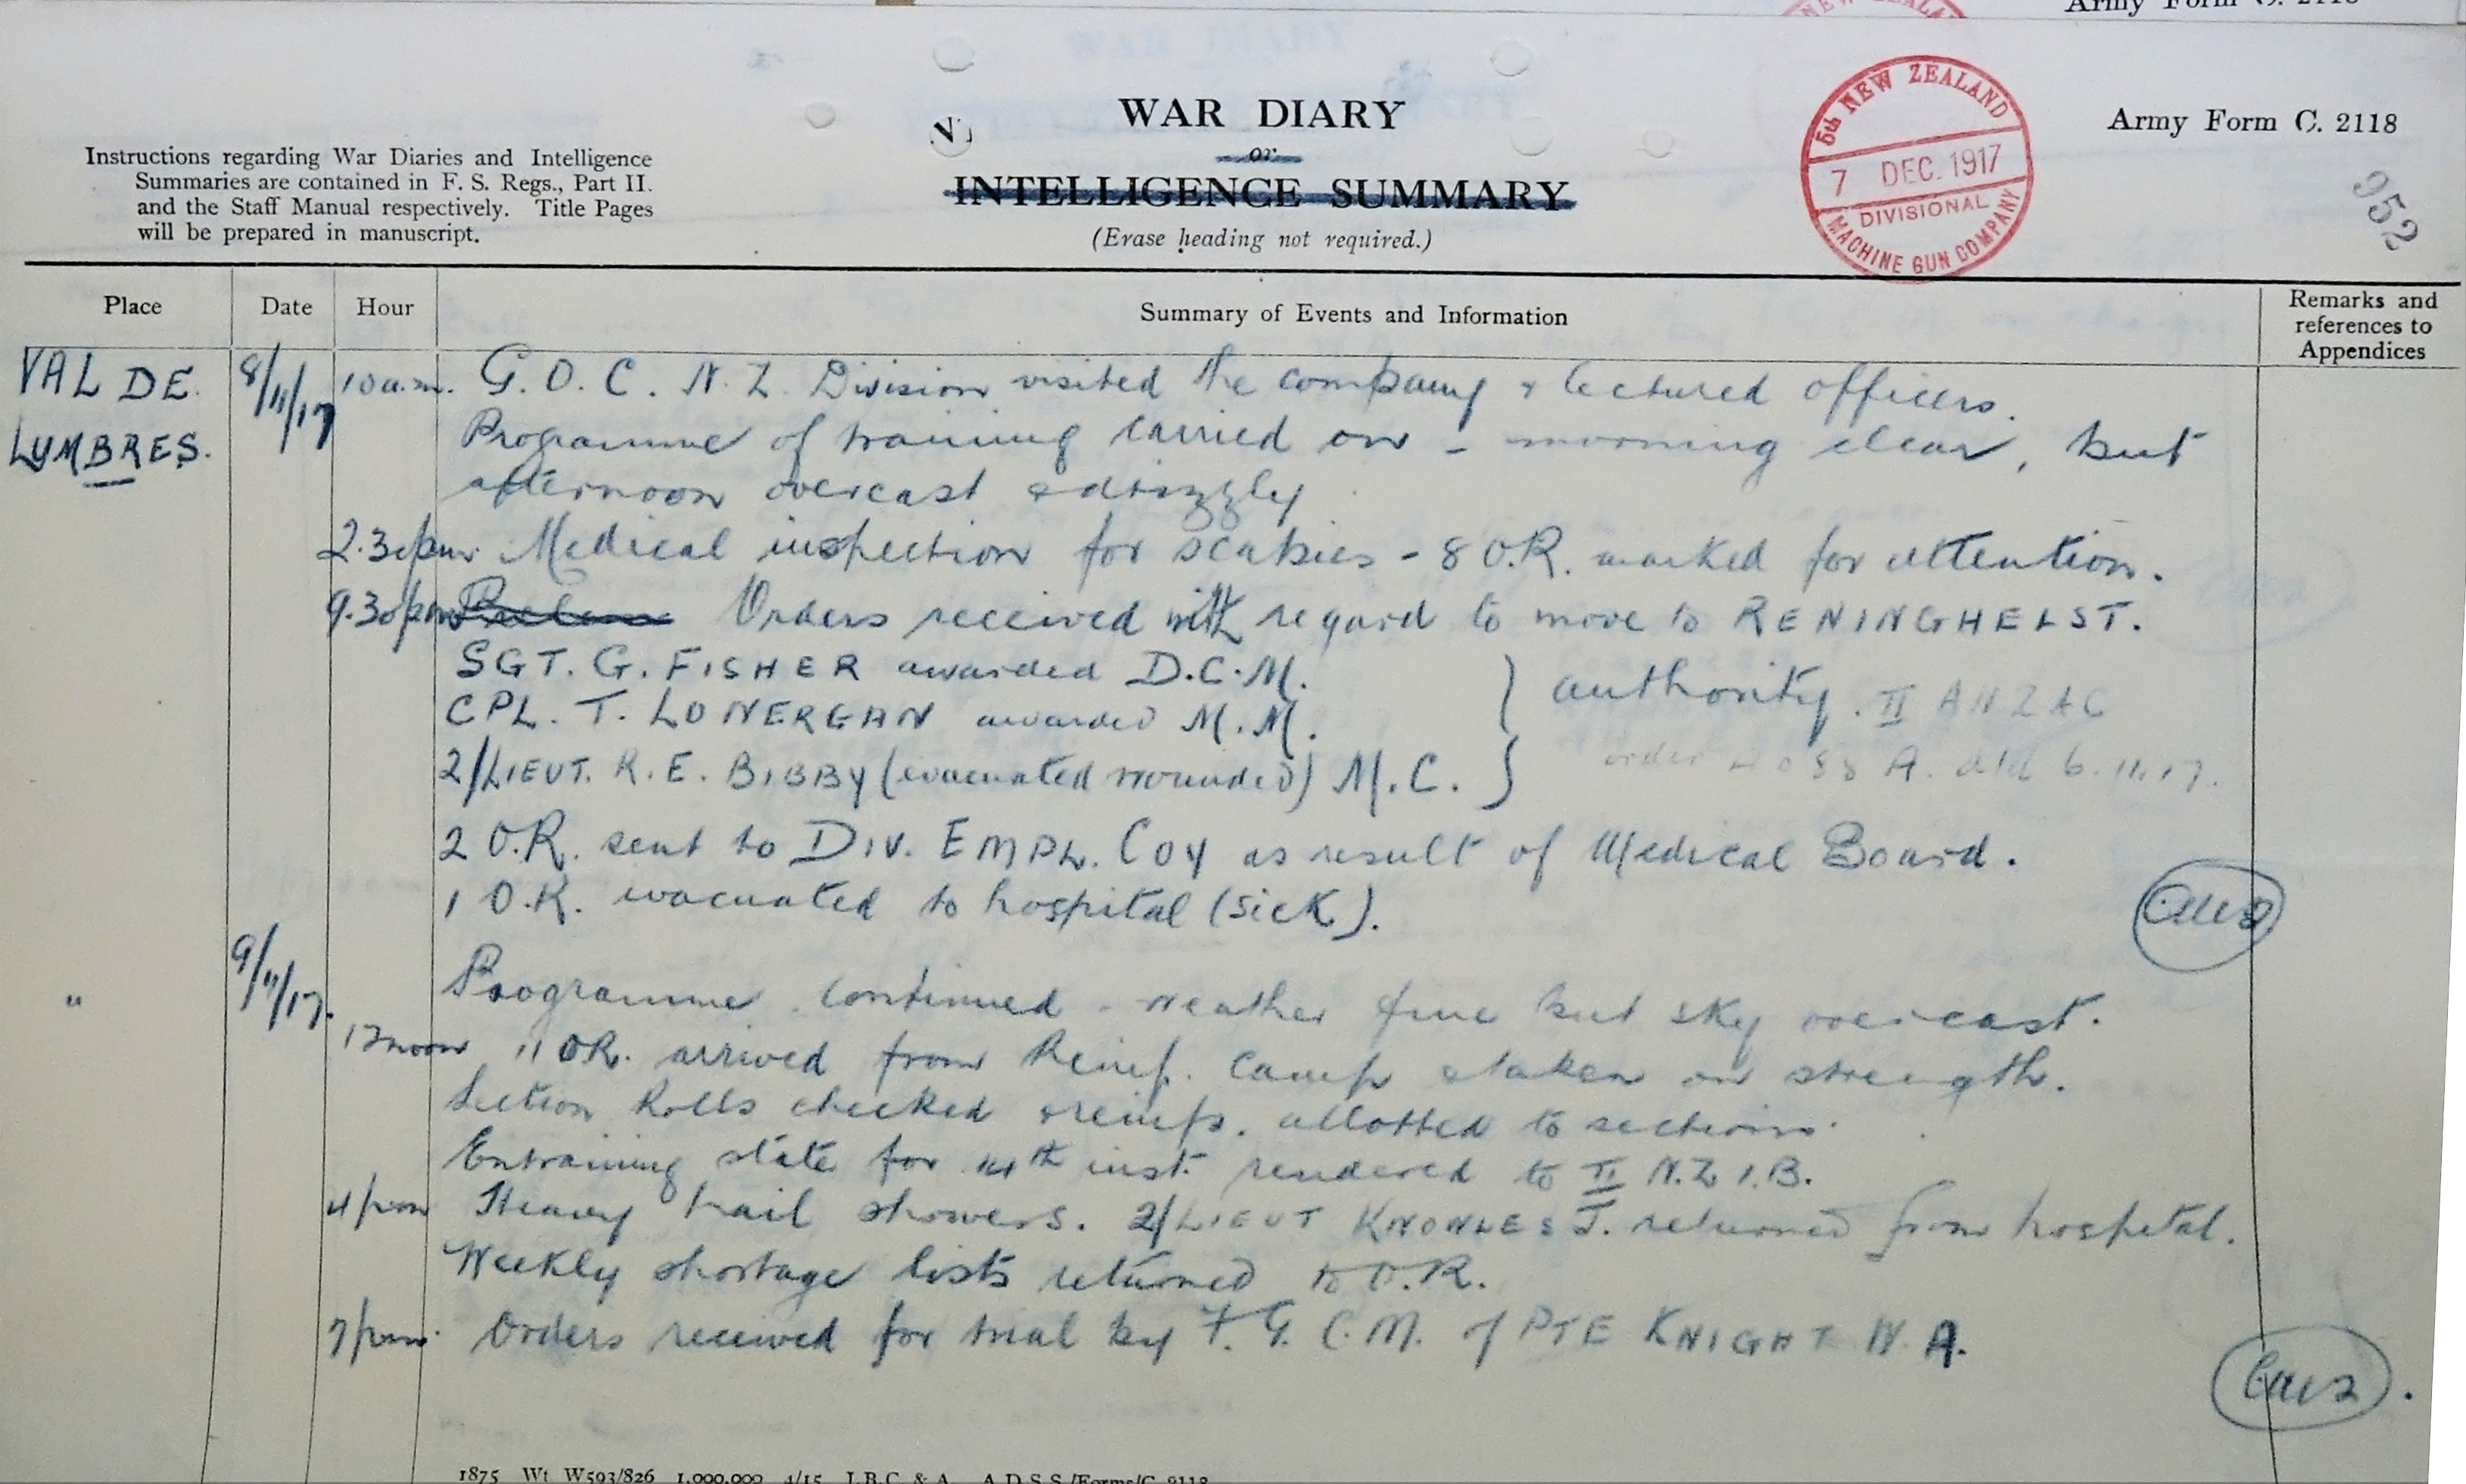 Army Form C. 2118
WAR DIARY
or
INTELLIGENCE SUMMARY
(Erase heading not required.)
Instructions regarding War Diaries and Intelligence
Summaries are contained in F. S. Regs., Part II.
and the Staff Manual respectively. Title Pages
will be prepared in manuscript.
5th NEW ZEALAND
7 DEC. 1917
DIVISIONAL
MACHINE GUN COMPANY
Army Form C. 2118
952
Place Date Hour Summary of Events and Information Remarks and references to Appendices
VAL DE 8/11/17 10 a.m. G.O.C. N.Z. Division visited the company & lectured officers.
LUMBRES. Programme of training carried on - morning clear, but
afternoon overcast & drizzly
2.30pm Medical inspection for scabies - 8 O.R. marked for attention.
9.30pm Orders received with regard to move to RENINGHELST.
SGT. G. FISHER awarded D.C.M.
CPL. T. LONERGAN awarded M.M. } authority. II ANZAC
2/LIEUT. R. E. BIBBY (evacuated wounded) M.C. } order A. dtd 6.11.17.
2 O.R. sent to DIV. EMPL. COY as result of Medical Board.
1 O.R. evacuated to hospital (sick).
" 9/11/17. Programme continued - weather fine but sky overcast.
12 noon 11 OR. arrived from Reinf. Camp & taken on strength.
Section Rolls checked & reinfs. allotted to sections.
Entraining state for 14th inst. rendered to II N.Z.I.B.
4 pm Heavy hail showers. 2/LIEUT KNOWLES J. returned from hospital.
Weekly shortage lists returned to O.R.
7 pm. Orders received for trial by F.G.C.M. of PTE KNIGHT W.A.
1875 Wt. W593/826 1,000,000 4/15 J.B.C. & A. A.D.S.S./Forms/C. 2118.